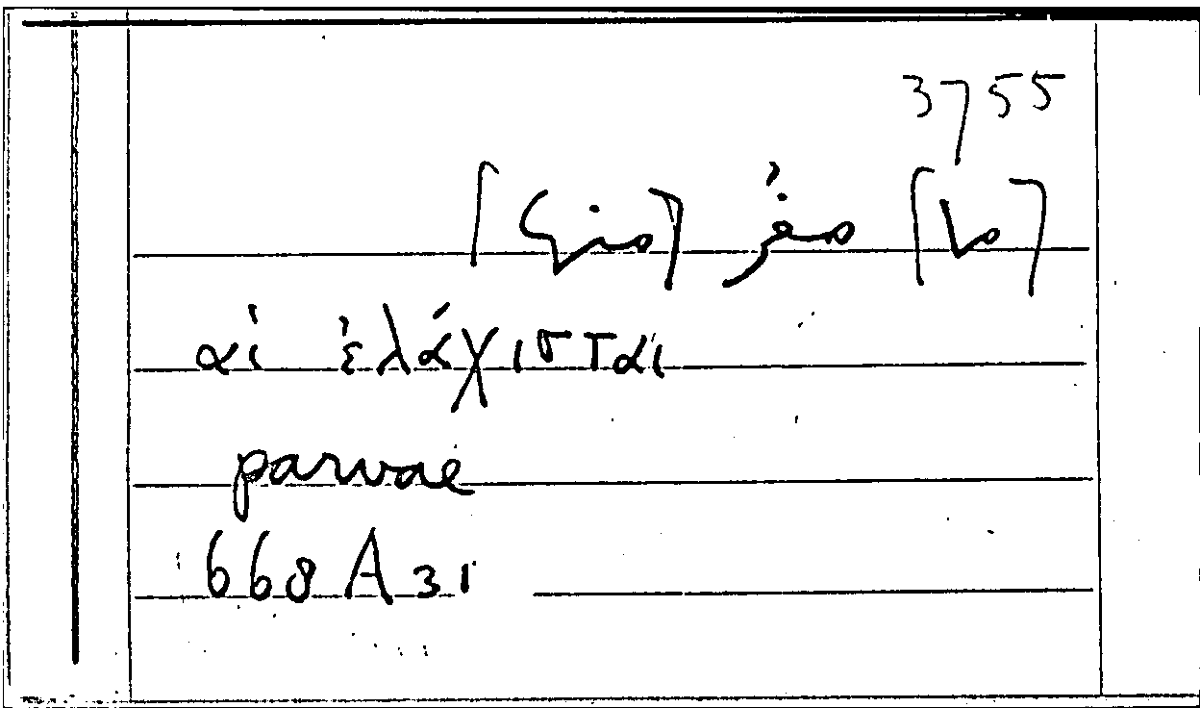 3755
[ما] صغُر [منها]
αἱ ἐλάχισται
parvae
668 A 31